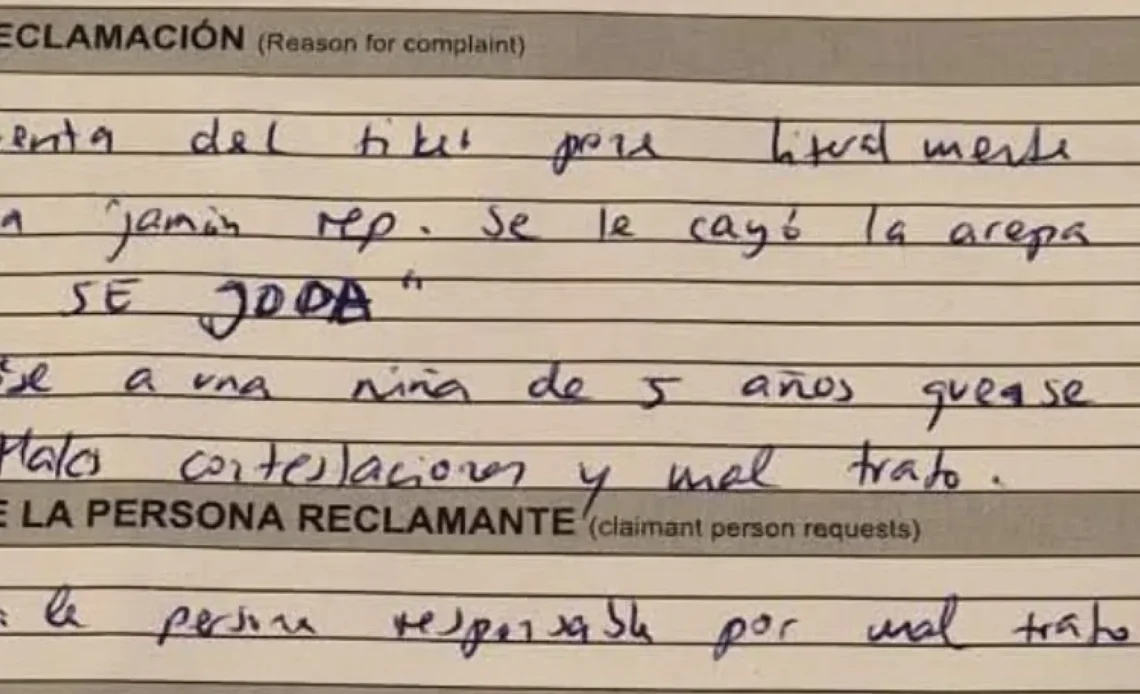 ECLAMACIÓN (Reason for complaint)
enta del tiket pone literalmente
a "jamón rep. Se le cayó la arepa
SE JODA"
a una niña de 5 años que se
Malas contestaciones y mal trato.
E LA PERSONA RECLAMANTE (claimant person requests)
la persona responsable por mal trato